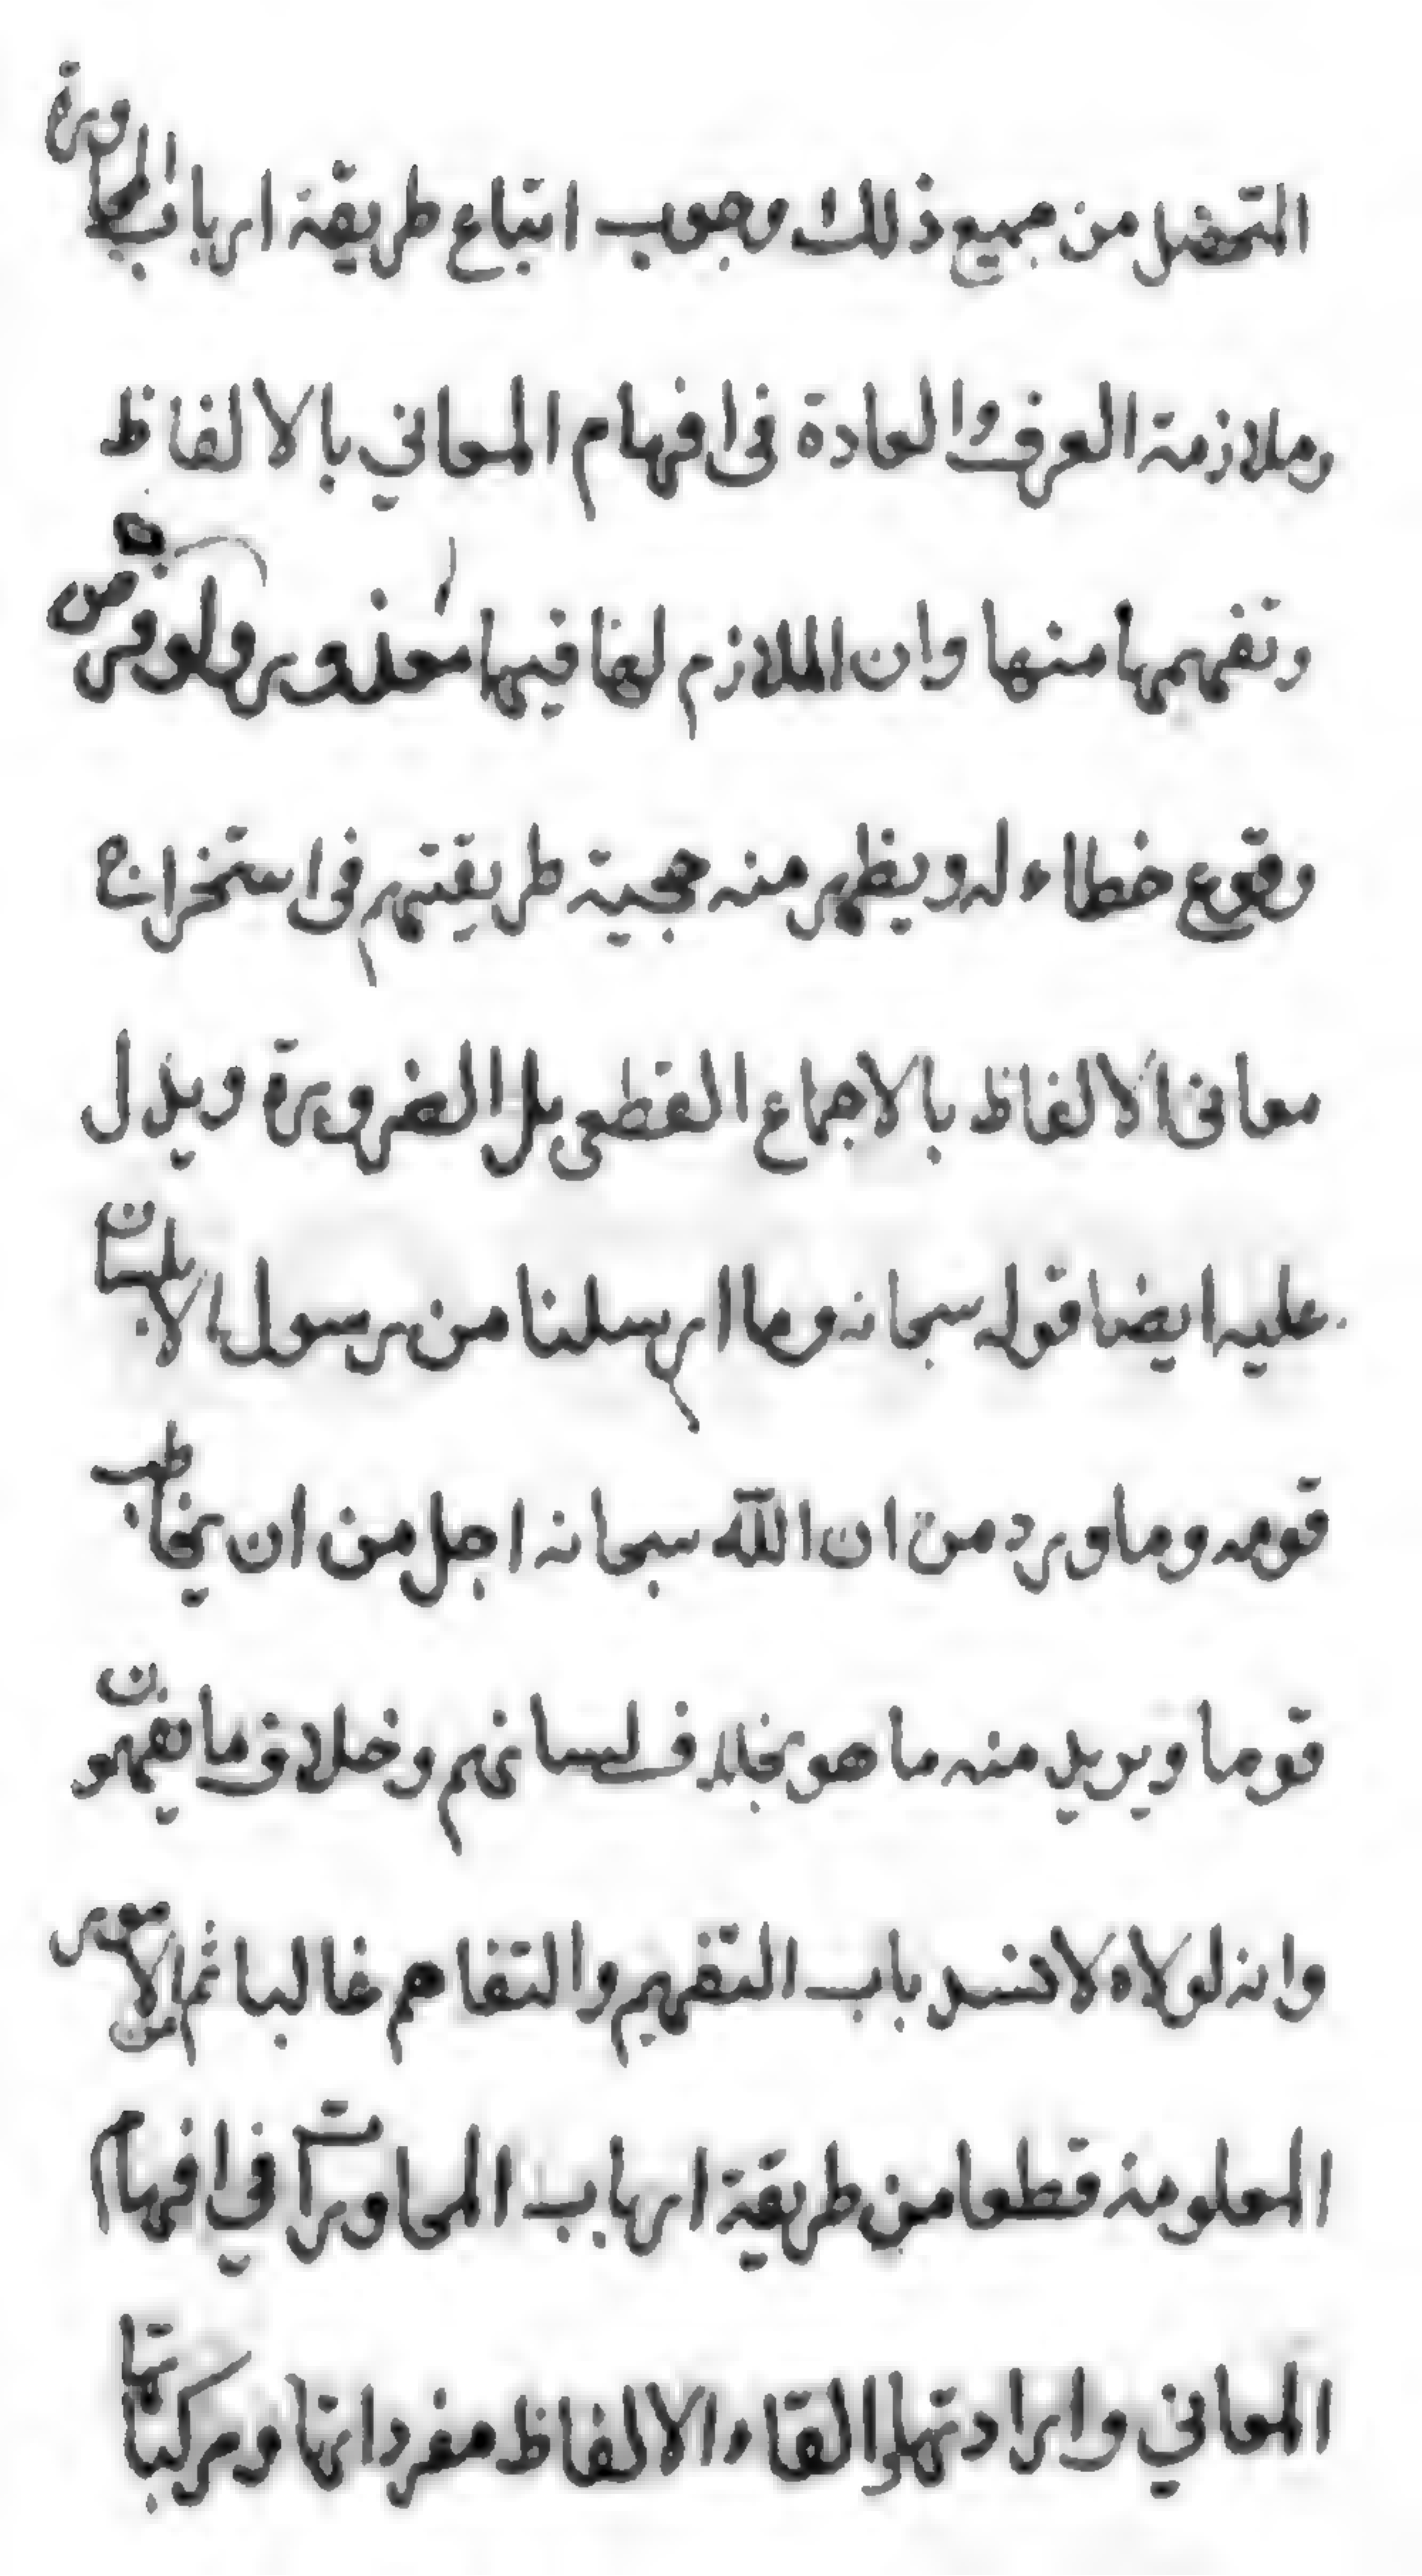 المتحصل من جميع ذلك وجوب اتباع طريقة ارباب المحاورة
وملازمة العرف والعادة فى افهام المعاني بالالفاظ
وتفهمها منها وان الملازم لها فيها معذور ولو فرض
وقوع خطاء له ويظهر منه حجية طريقتهم فى استخراج
معانى الالفاظ بالاجماع القطعى بل الضرورة ويدل
عليه ايضا قوله سبحانه وما ارسلنا من رسول الا بلسان
قومه وما ورد من ان الله سبحانه اجل من ان يخاطب
قوما ويريد منه ما هو بخلاف لسانهم وخلاف ما يفهمون
وانه لولاه لانسد باب التفهيم والتفاهم غالبا ثم الامور
المعلومة قطعا من طريقة ارباب المحاورات في افهام
المعاني وارادتها والقاء الالفاظ مفرداتها ومركباتها